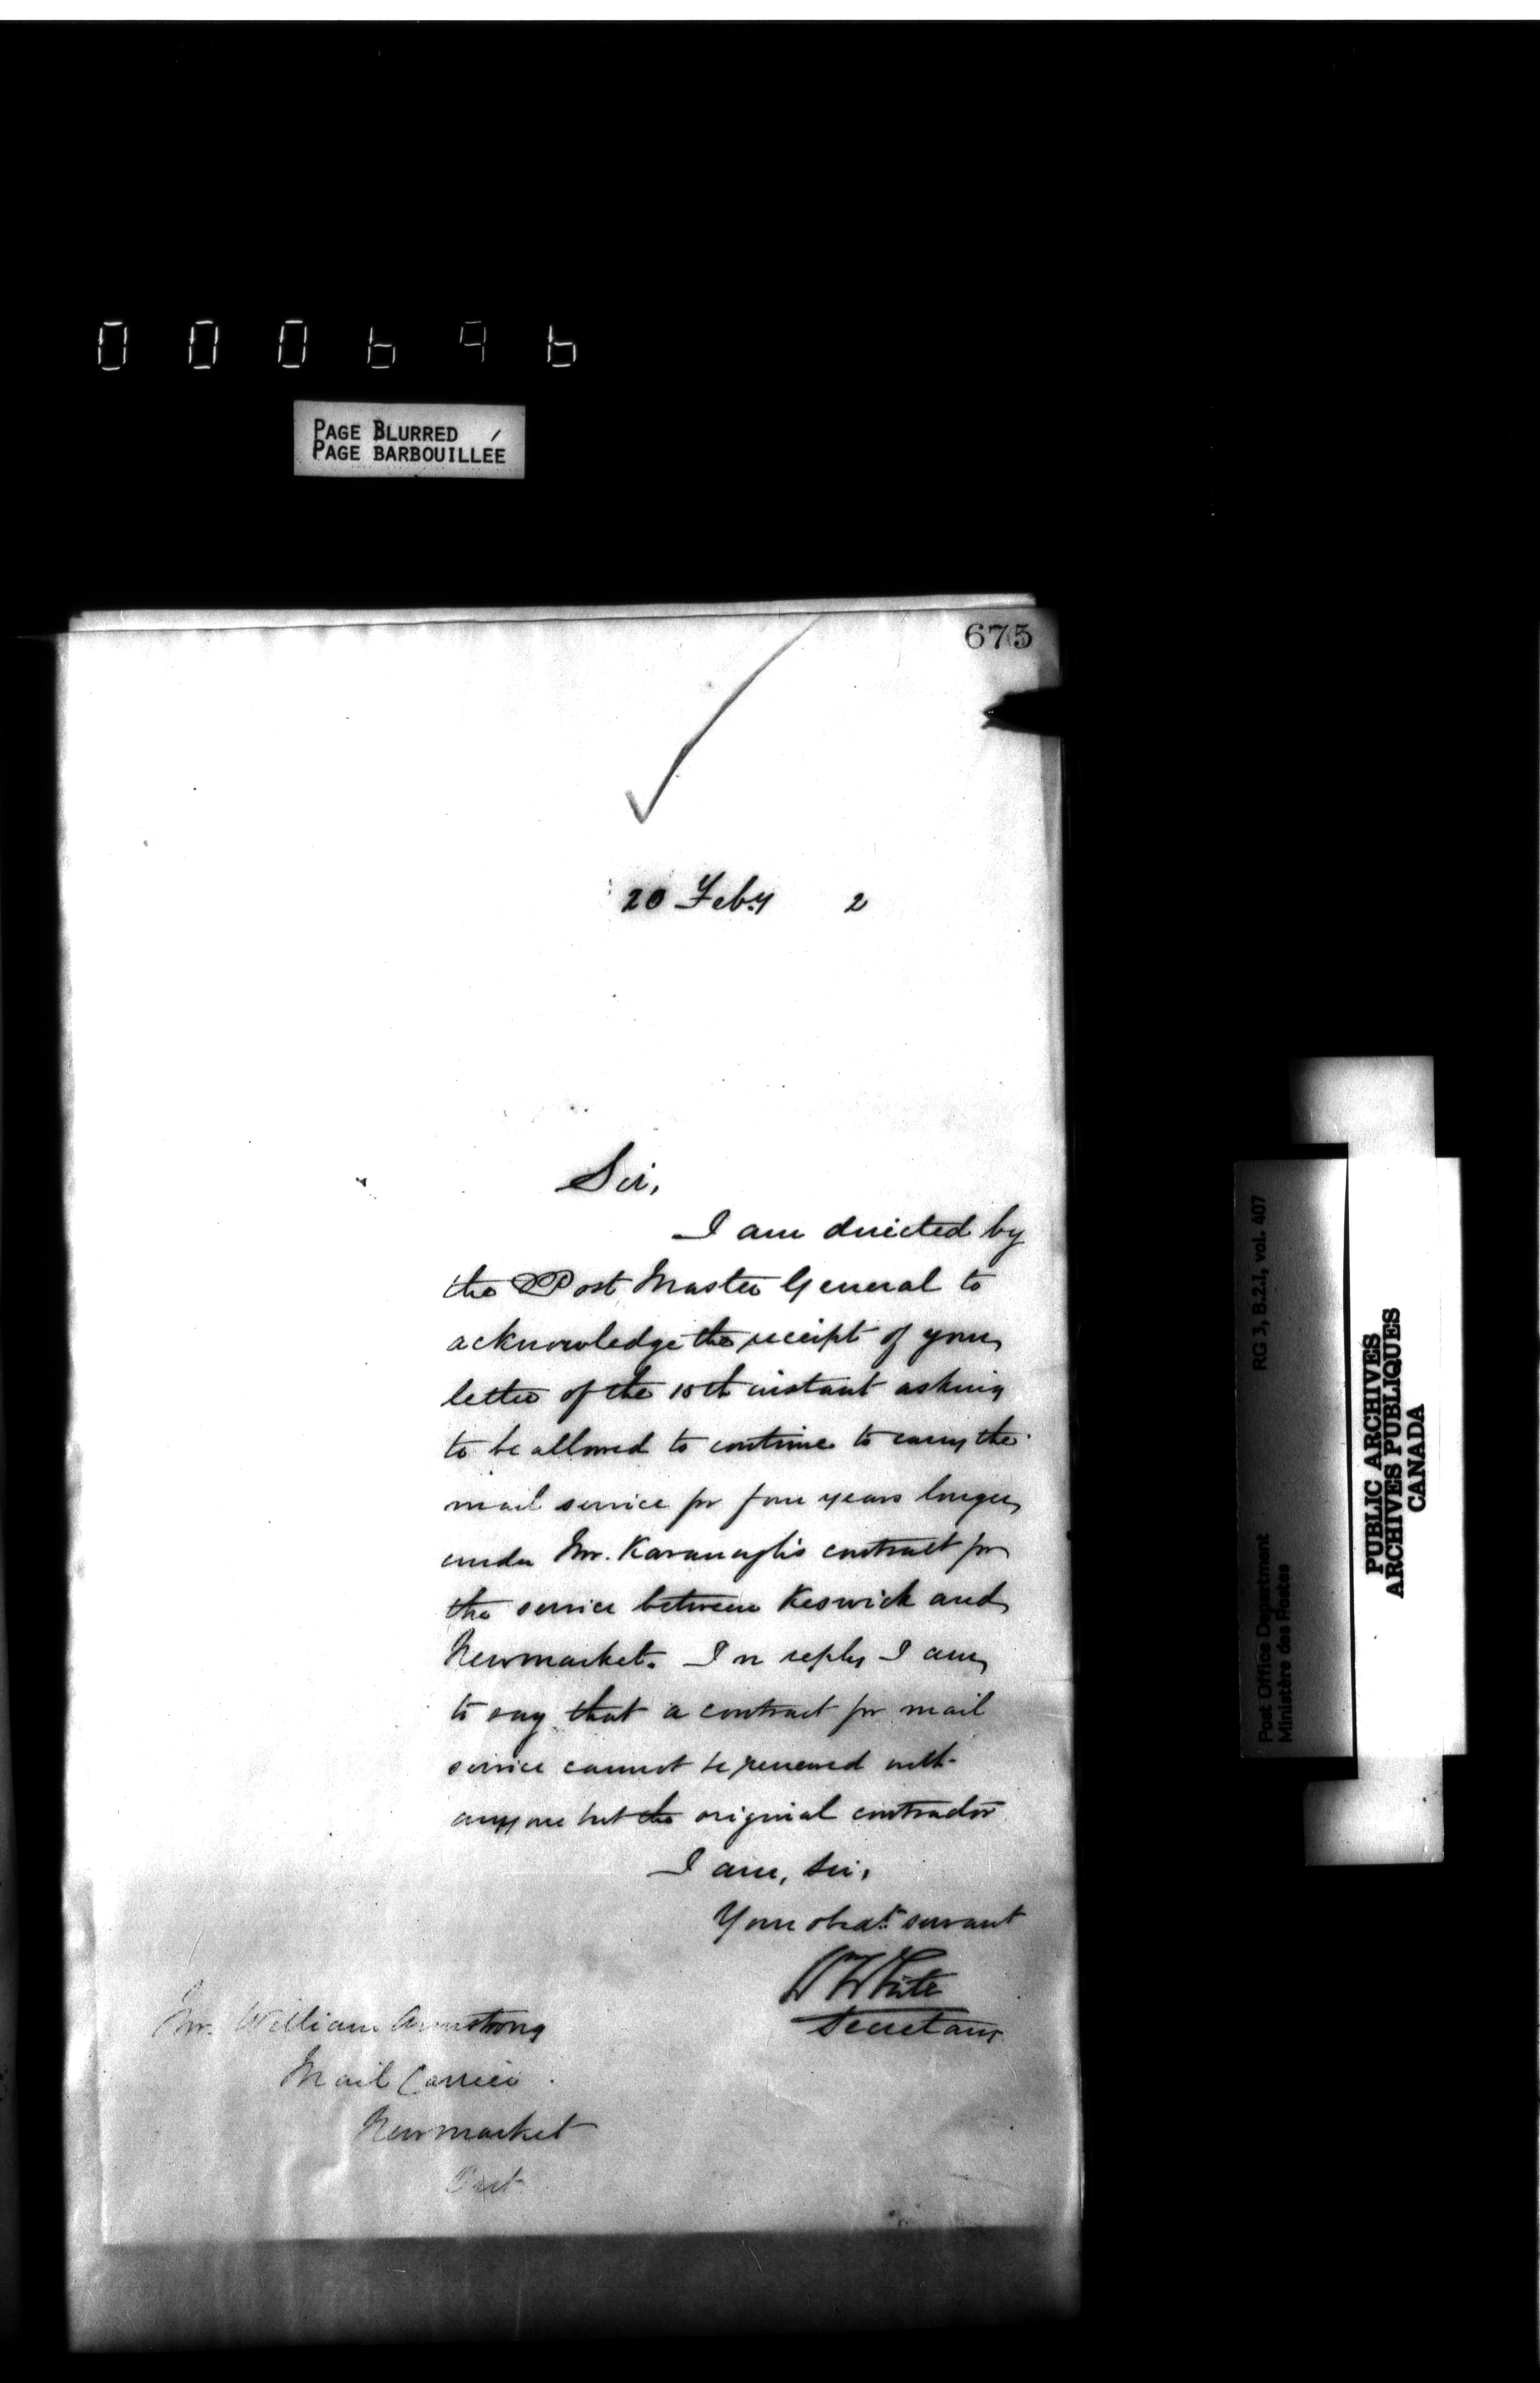 000696
PAGE BLURRED
PAGE BARBOUILLÉE
675
20 Feby 2
Sir,
I am directed by
the Post Master General to
acknowledge the receipt of your
letter of the 10th instant asking
to be allowed to continue to carry the
mail service for four years longer
under Mr. Kavanagh's contract for
the service between Keswick and
Newmarket. In reply I am
to say that a contract for mail
service cannot be renewed with
anyone but the original contractor
I am, Sir,
Your obedt. servant
Wm White
Secretary
Mr. William Armstrong
Mail Carrier
Newmarket
Ont
Post Office Department RG 3, B.2.I, vol. 407
Ministère des Postes
PUBLIC ARCHIVES
ARCHIVES PUBLIQUES
CANADA